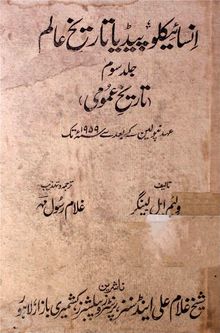 انسائیکلوپیڈیا تاریخ عالم
جلد سوم
(تاریخ عمومی)
عہد نپولین کے بعد سے ۱۹۵۹ء تک
تالیف
ترجمہ و تہذیب
ولیم ایل لینگر
غلام رسول مہر
ناشرین
شیخ غلام علی اینڈ سنز، پرنٹرز و پبلشرز، کشمیری بازار لاہور